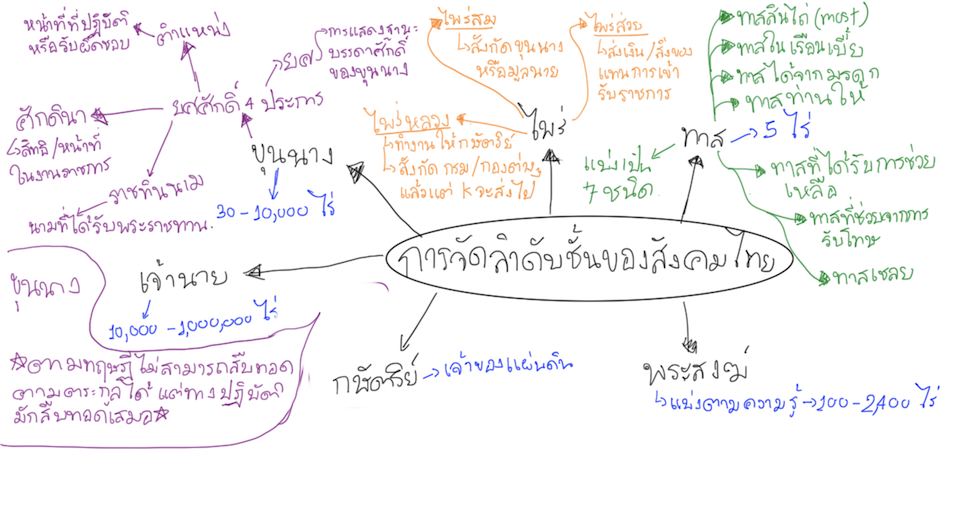 หน้าที่ที่ปฏิบัติ
หรือรับผิดชอบ
ตำแหน่ง
ยศ
การแสดงฐานะ
บรรดาศักดิ์
ของขุนนาง
ศักดินา
สิทธิ/หน้าที่
ในงานราชการ
ยศศักดิ์ 4 ประการ
ราชทินนาม
นามที่ได้รับพระราชทาน
ขุนนาง
30 - 10,000 ไร่
ไพร่สม
สังกัดขุนนาง
หรือมูลนาย
ไพร่ส่วย
ส่งเงิน/สิ่งของ
แทนการเข้า
รับราชการ
ไพร่หลวง
ทำงานให้กษัตริย์
สังกัด กรม/กองต่างๆ
แล้วแต่ K จะส่งไป
ไพร่
ทาส
5 ไร่
แบ่งเป็น
7 ชนิด
ทาสสินไถ่ (most)
ทาสในเรือนเบี้ย
ทาสได้จากมรดก
ทาสท่านให้
ทาสที่ได้รับการช่วย
เหลือ
ทาสที่ช่วยจากการ
รับโทษ
ทาสเชลย
การจัดลำดับชั้นของสังคมไทย
เจ้านาย
10,000 - 1,000,000 ไร่
ขุนนาง
☆ตามทฤษฎีไม่สามารถสืบทอด
ตามตระกูลได้ แต่ทางปฏิบัติ
มักสืบทอดเสมอ☆
กษัตริย์
เจ้าของแผ่นดิน
พระสงฆ์
แบ่งตามความรู้ → 100 - 2,400 ไร่